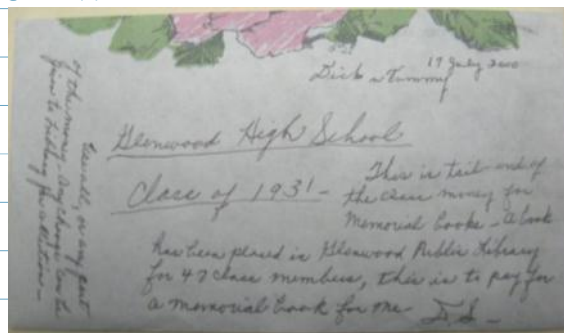 17 July 2000
Dick & Tammy
Glenwood High School
Class of 1931 -
This is tail end of
the class money for
Memorial books - A book
has been placed in Glenwood Public Library
for 47 class members, this is to pay for
a memorial book for me - D.S. -
Use all, or any part
of the money - Any change can be
given to Library for addition -